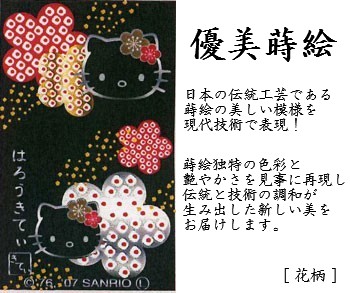 優美蒔絵
日本の伝統工芸である
蒔絵の美しい模様を
現代技術で表現！
蒔絵独特の色彩と
艶やかさを見事に再現し
伝統と技術の調和が
生み出した新しい美を
お届けします。
[花柄]
はろうきてぃ
きてぃ
©'76,'07 SANRIO Ⓛ